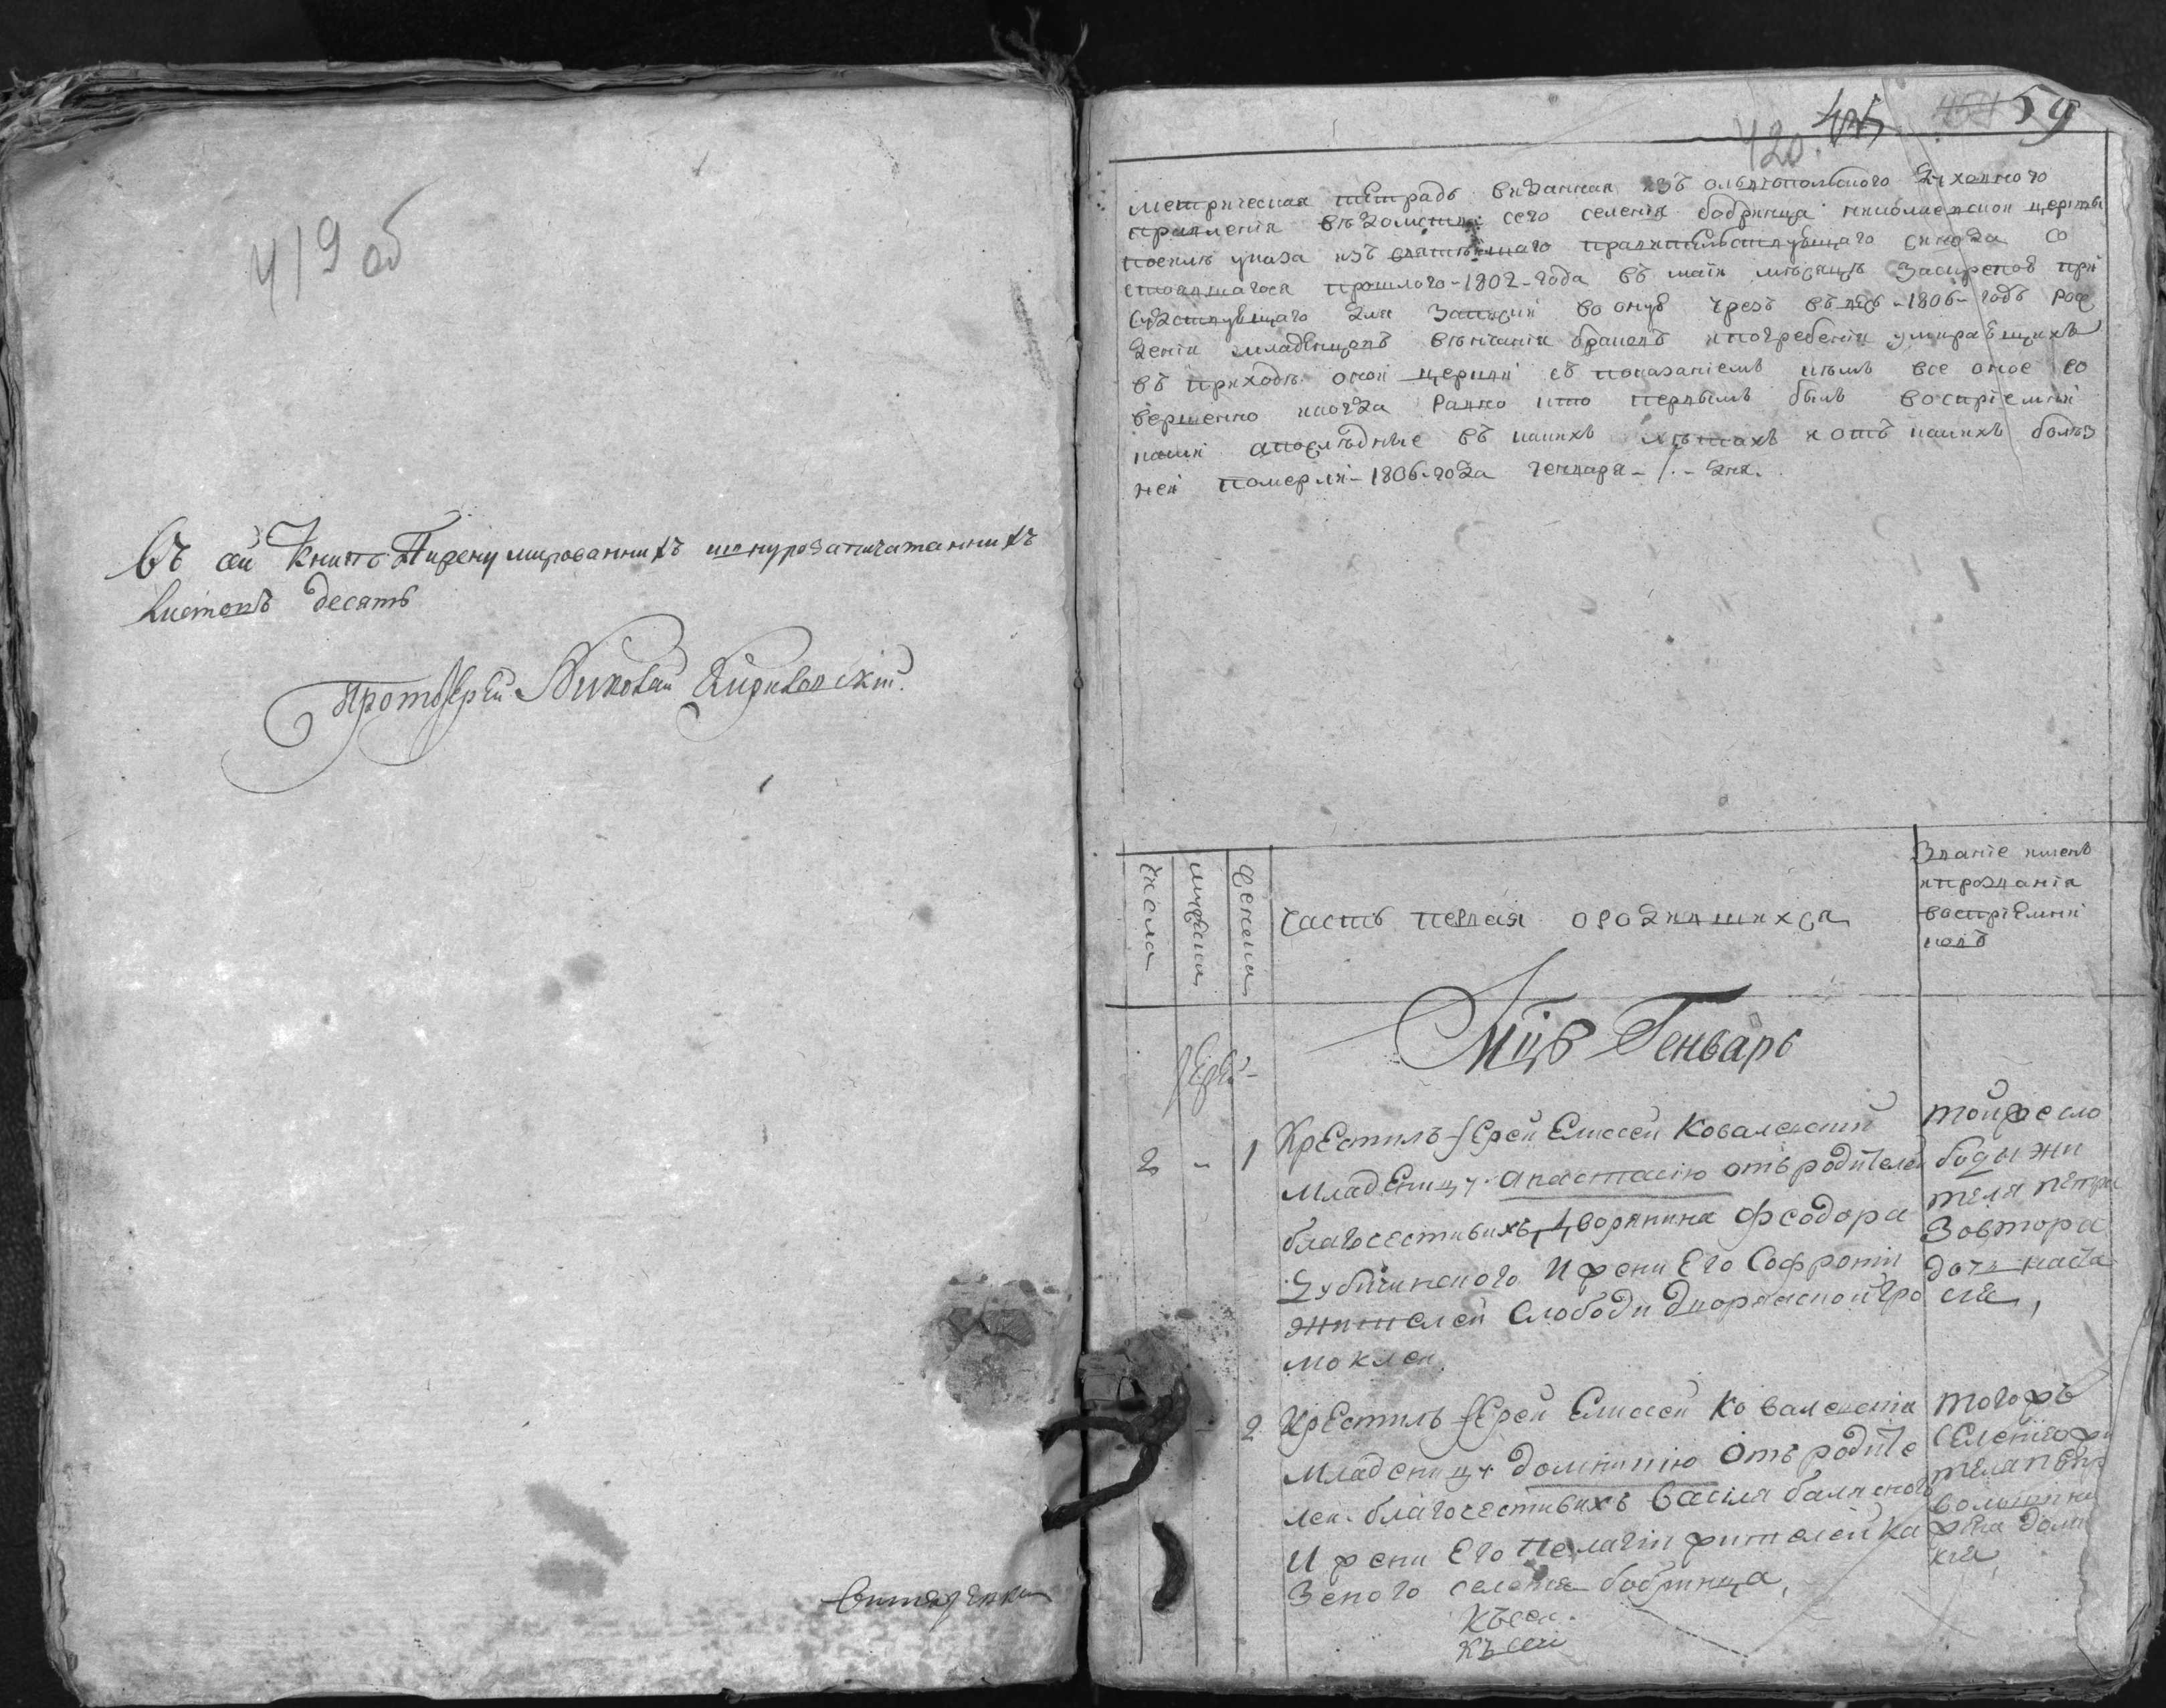 419 об
Въ сей Книгѣ Пиренумированнихъ шнурозапичатаннихъ
Листовъ десять
Протоіерей Николай
59
420.
Метрическая тетрадь виданная изъ олвіопольского духовного
правленія вѣдомства сего селенія бобринца николаевской церкви
посилѣ указа изъ святѣйшаго правительствующаго синода со
стоявшагося прошлого 1802 года въ маіи мѣсяцѣ
для записки во оную чрезъ весь 1806 годъ рож
денія младенцовъ вѣнчанія браковъ ипогребенія умирающихъ
въ приходѣ оной церкви съ показаніемъ кѣмъ все оное со
вершенно икогда равно кто первымъ былъ воспріемни
ками апослѣдніе въ какихъ лѣтахъ и отъ какихъ болѣз
ней померли 1806 года генваря 1 дня.
числа
мужеска
женска
часть первая ородившихся
Званіе именъ
ипрозванія
воспріемни
ковъ
Мцъ Генварь
2 - 1 Крестилъ Іерей Елисей Ковалевский
младеницу анастасію отъ родителей
благочестивихъ дворянина Феодора
И жени Его Софронии
жителей Слободи Гро
моклеи
тойже сло
боди жи
теля петра
дочь
2 Крестилъ Іерей Елисей Ковалевскій
младеницу домникию Отъ родите
лей благочестивихъ Василя
И жени Его Пелагіи жителей Ка
зеного селенія бобринца,
тогожъ
селенія жи
теля петра
волошина
жена домни
кия
Къ сей
Къ сей